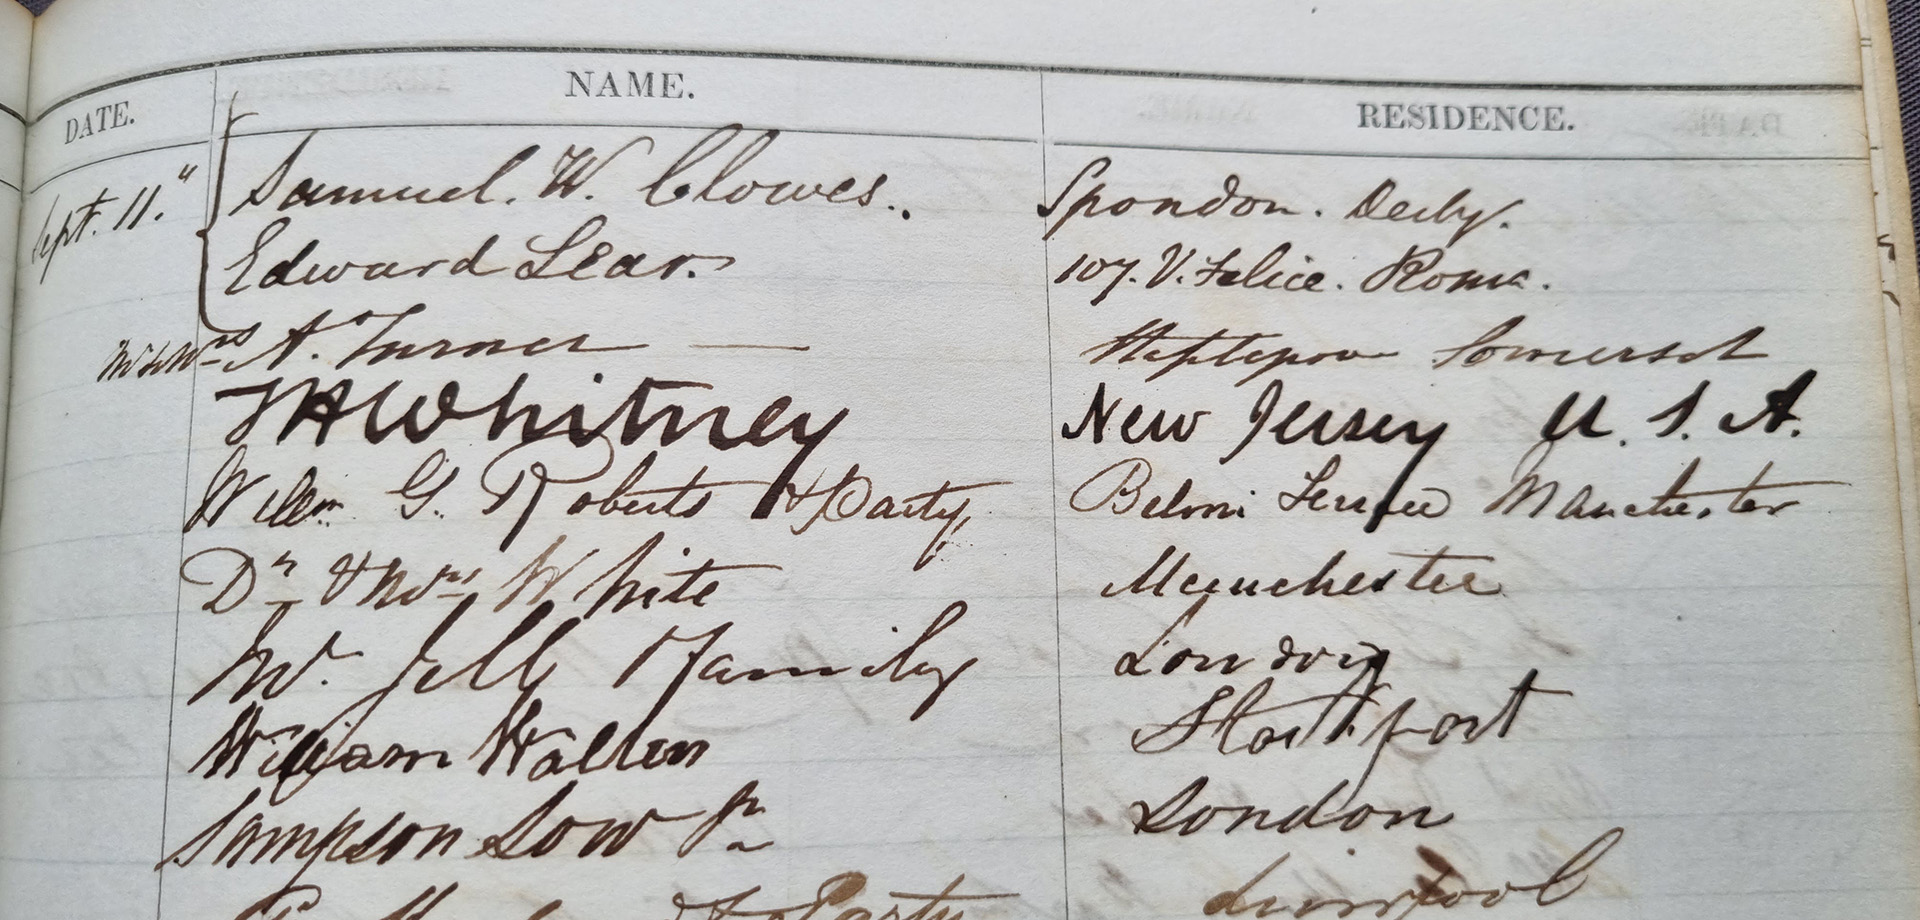 DATE. NAME. RESIDENCE.
Sept. 11." Samuel. W. Clowes.. Spondon. Derby.
Edward Lear. 107. V. Felice. Roma.
Mr & Mrs A. Turner — Somerset
Whitney New Jersey U. S. A.
Willm G. Roberts & Party, Terrace Manchester
Dr & Mrs White Manchester
W. Jell & Family London
William Walton Stockport
Sampson Low Jr London
& Party Liverpool